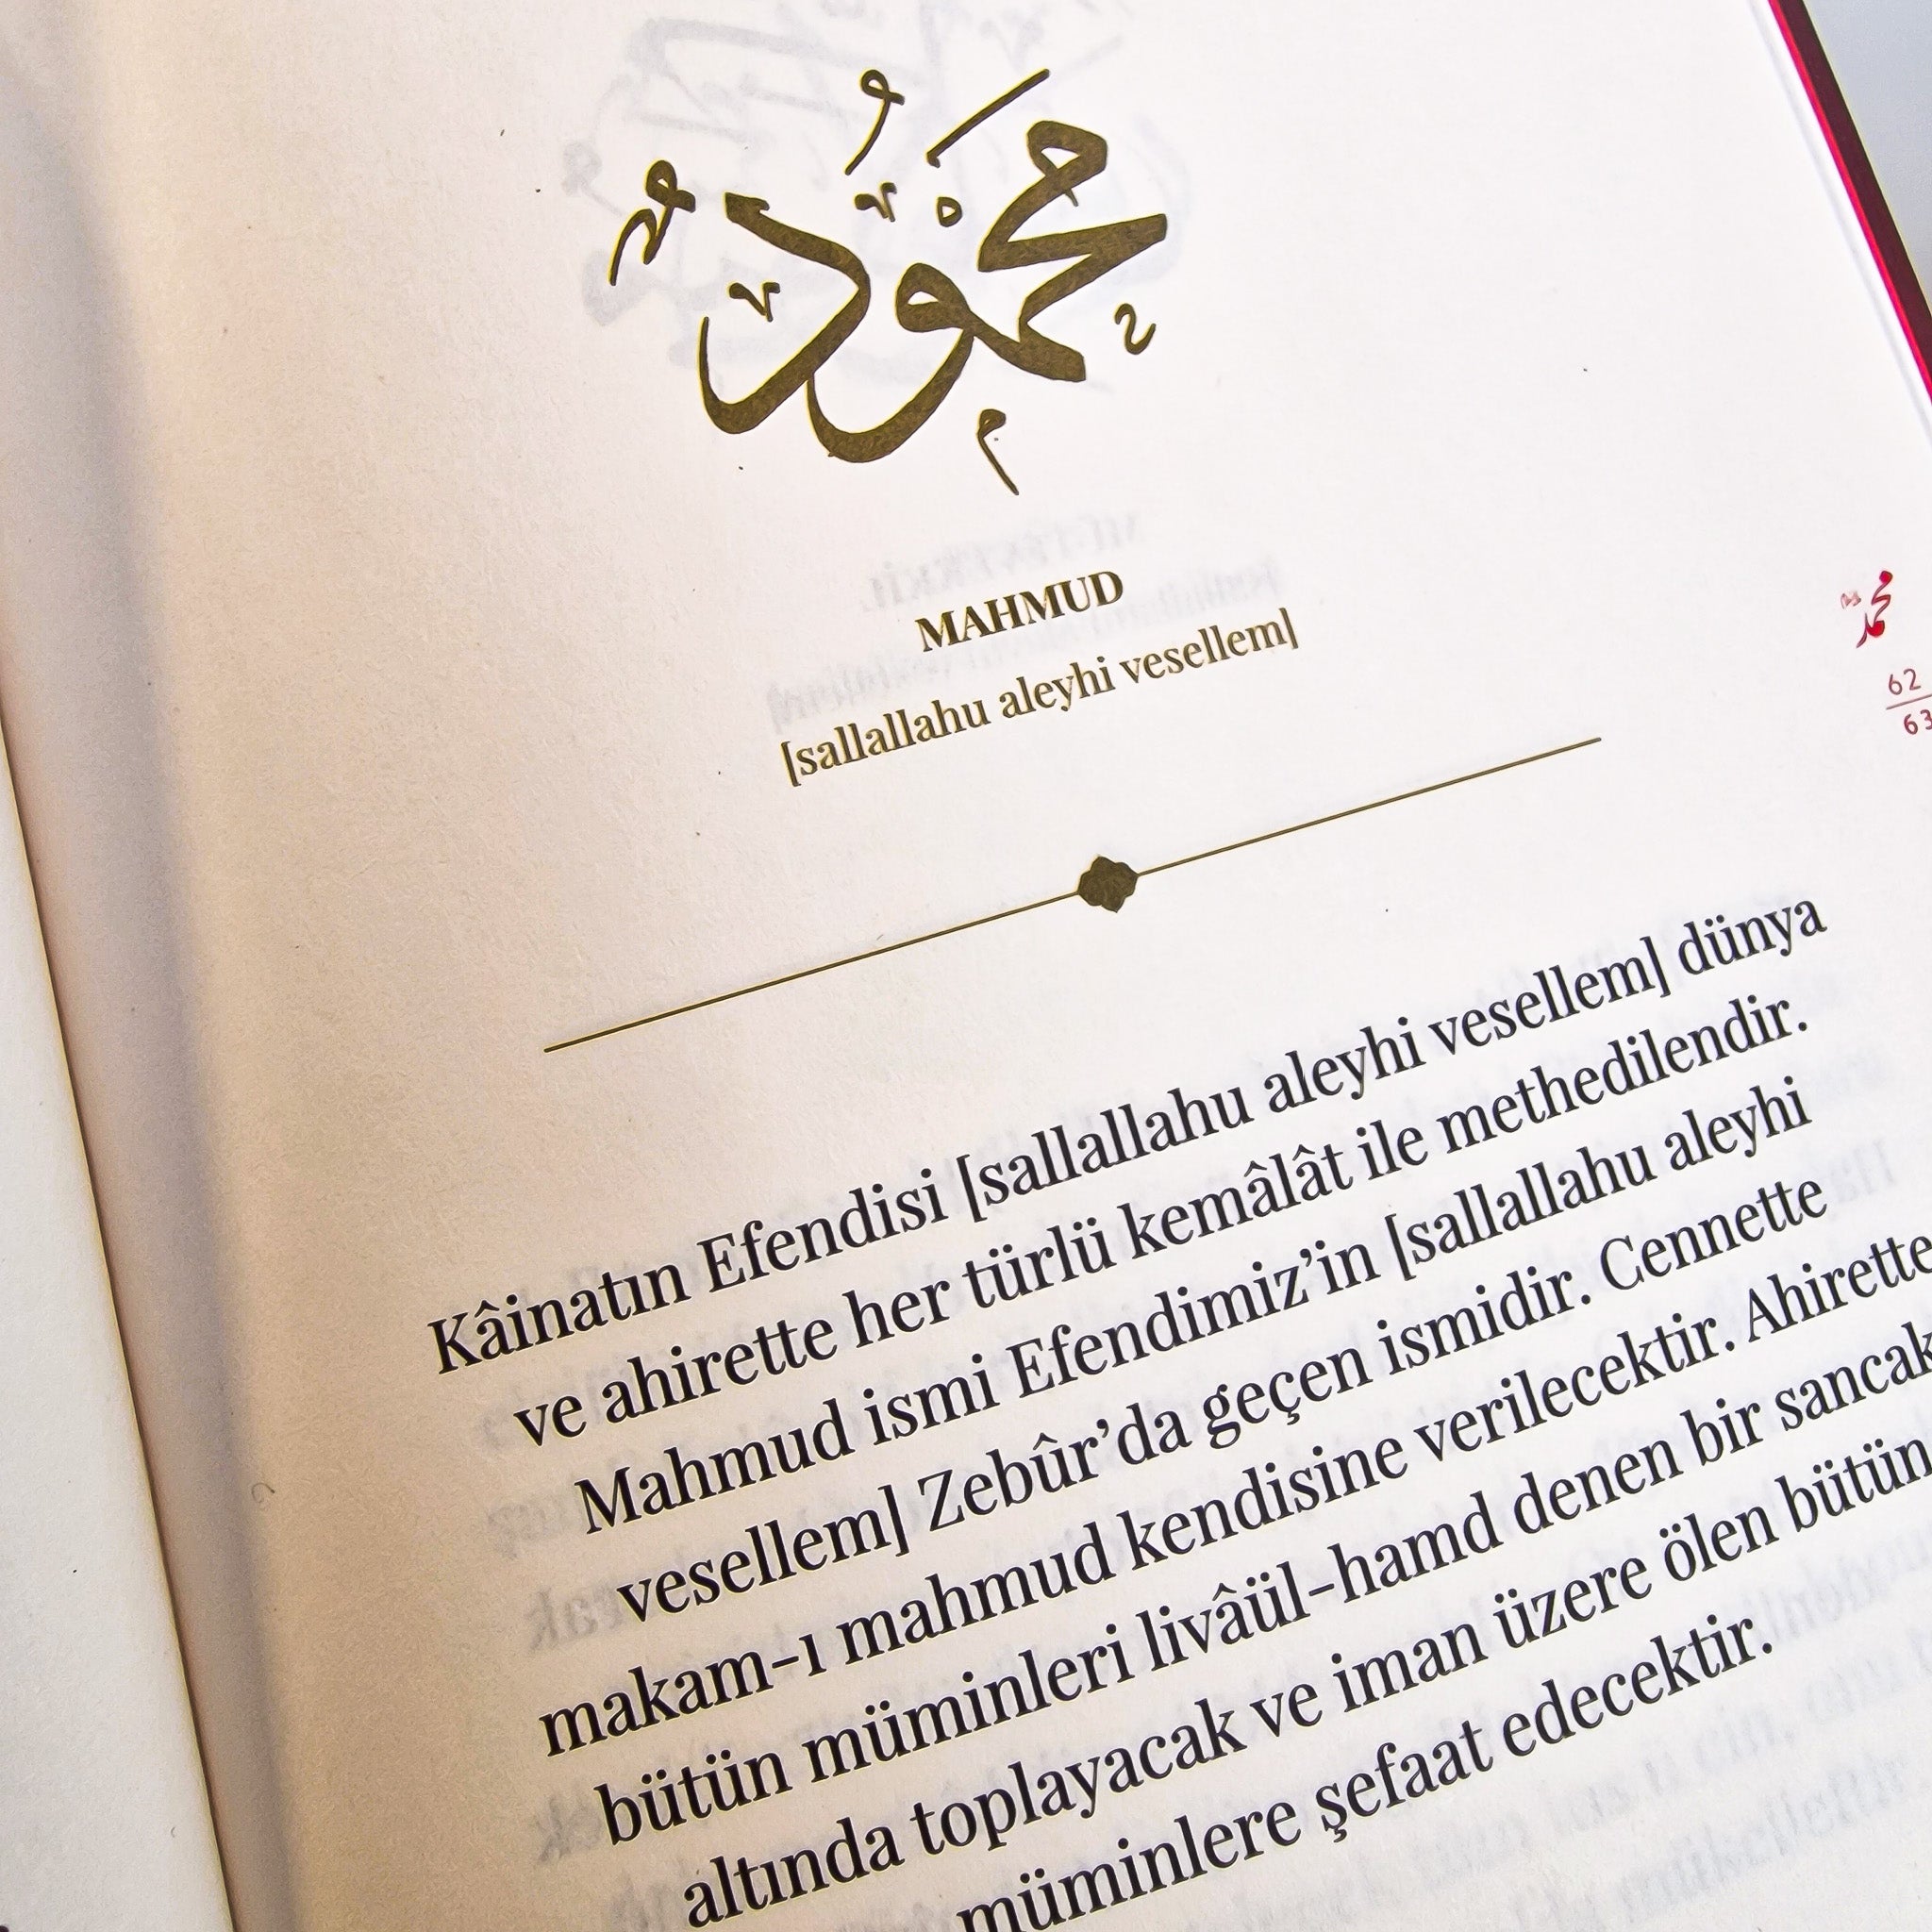 مَحْمُودٌ
MAHMUD
[sallallahu aleyhi vesellem]
محمد
62
63
Kâinatın Efendisi [sallallahu aleyhi vesellem] dünya
ve ahirette her türlü kemâlât ile methedilendir.
Mahmud ismi Efendimiz’in [sallallahu aleyhi
vesellem] Zebûr’da geçen ismidir. Cennette
makam-ı mahmud kendisine verilecektir. Ahirette
bütün müminleri livâül-hamd denen bir sancak
altında toplayacak ve iman üzere ölen bütün
müminlere şefaat edecektir.